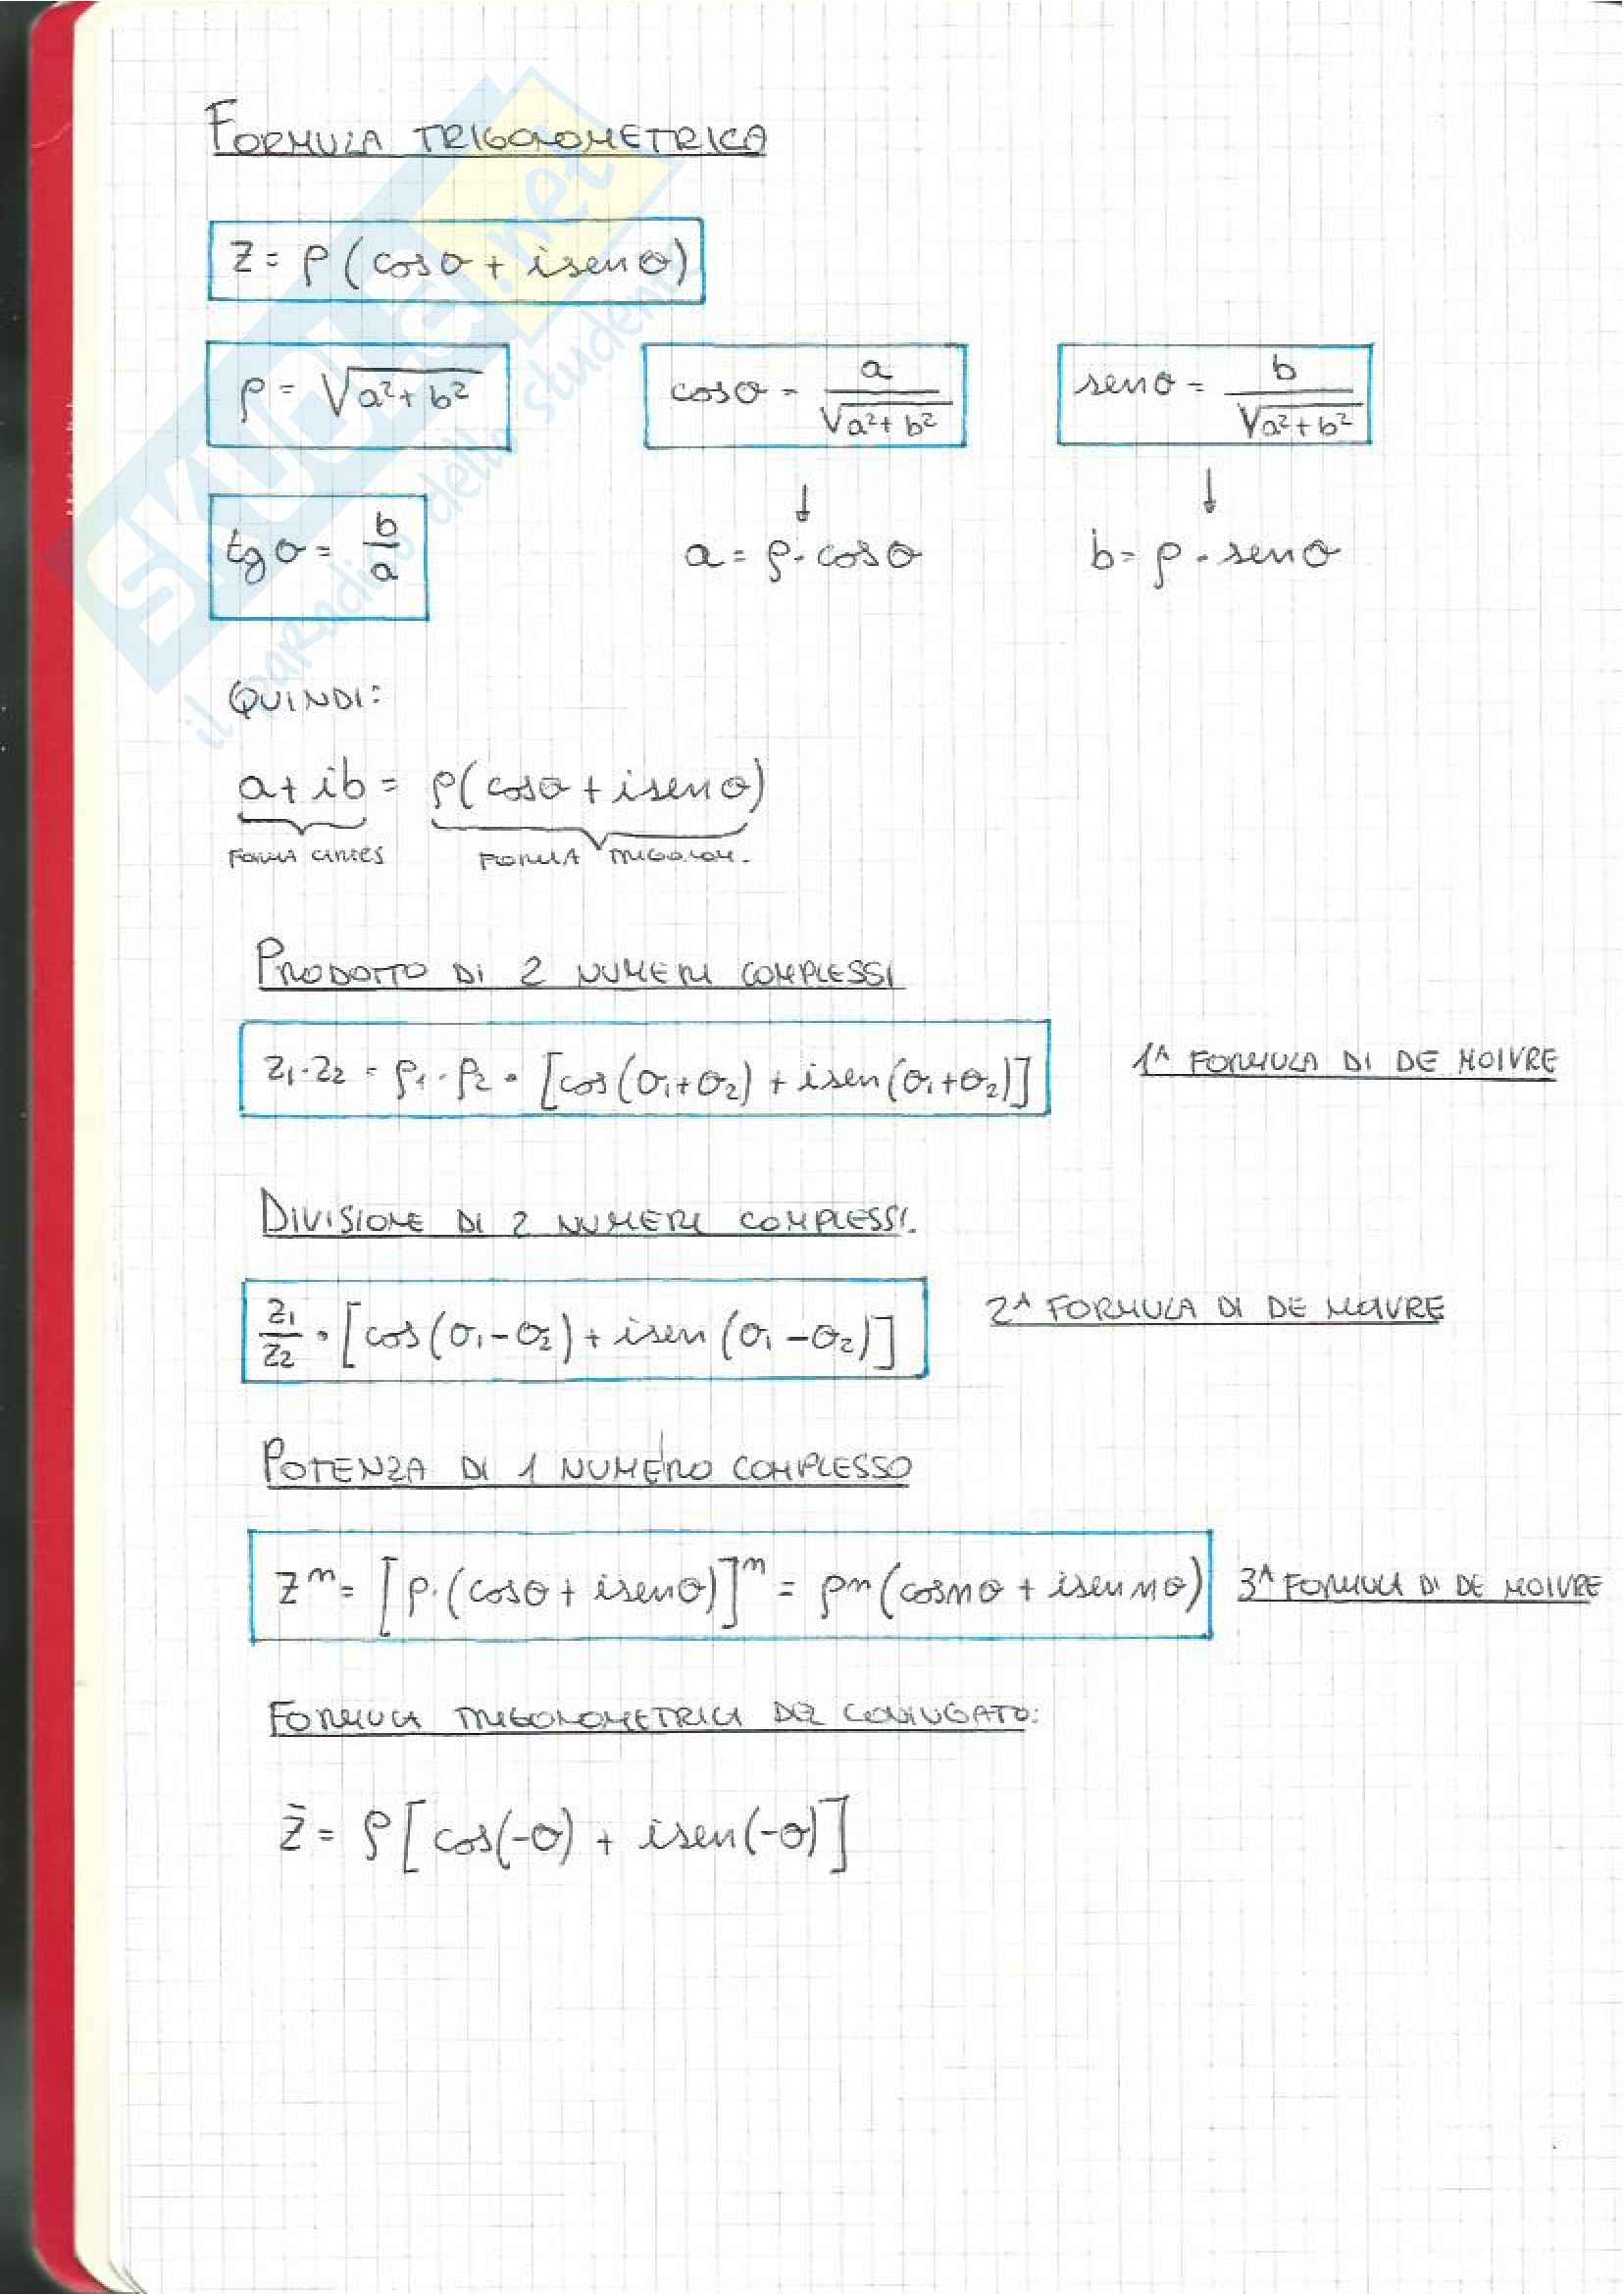 FORMULA TRIGONOMETRICA
z = ρ (cosθ + i senθ)
ρ = √a²+b²    cosθ = a/√a²+b²    senθ = b/√a²+b²
↓    ↓
tgθ = b/a    a = ρ · cosθ    b = ρ · senθ
QUINDI:
a + ib = ρ(cosθ + i senθ)
FORMA CARTES    FORMA TRIGONOM.
PRODOTTO DI 2 NUMERI COMPLESSI
z₁·z₂ = ρ₁·ρ₂ · [cos(θ₁+θ₂) + i sen(θ₁+θ₂)]    1ᴬ FORMULA DI DE MOIVRE
DIVISIONE DI 2 NUMERI COMPLESSI.
z₁/z₂ · [cos(θ₁-θ₂) + i sen(θ₁-θ₂)]    2ᴬ FORMULA DI DE MOIVRE
POTENZA DI 1 NUMERO COMPLESSO
zⁿ = [ρ·(cosθ + i senθ)]ⁿ = ρⁿ(cos nθ + i sen nθ)    3ᴬ FORMULA DI DE MOIVRE
FORMULA TRIGONOMETRICA DEL CONIUGATO:
z̄ = ρ[cos(-θ) + i sen(-θ)]
SKUOLA.net
il paradiso dello studente